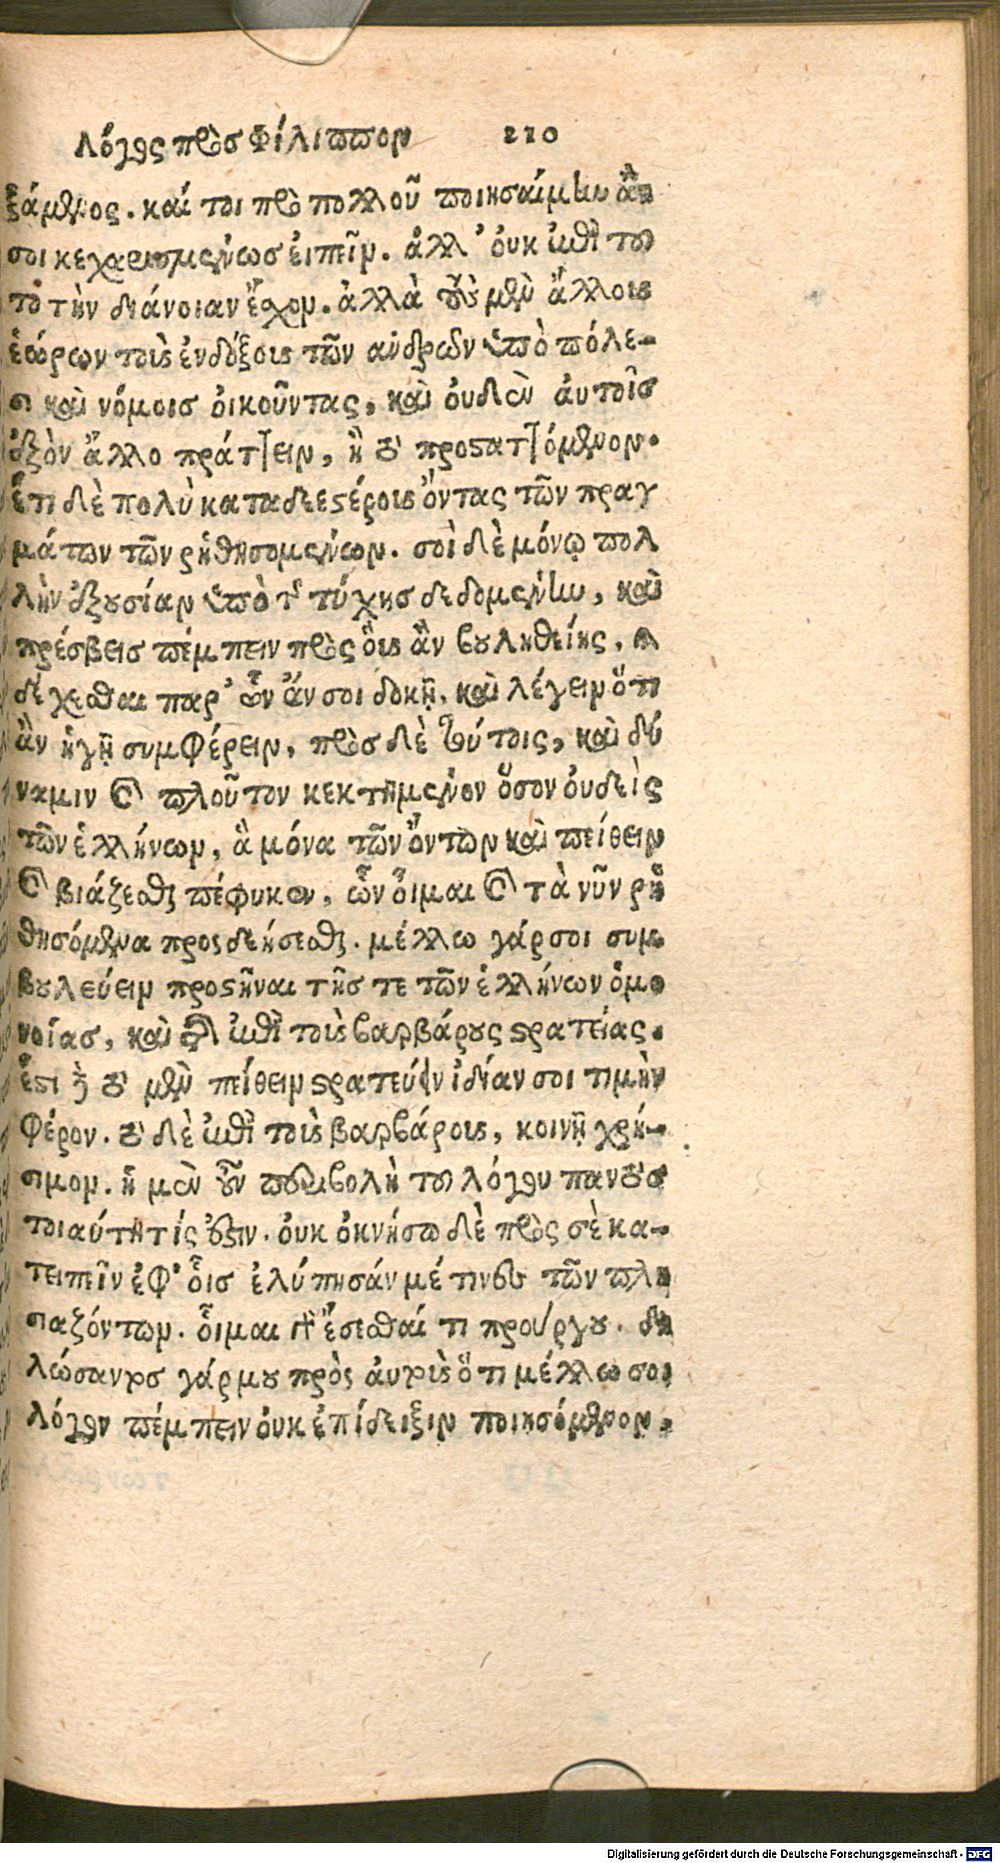 Λόγος πρὸσ Φίλιππον 210
ξάμενος. καί τοι πρὸ πολλοῦ ποιησαίμην ἄν
σοι κεχαρισμένωσ εἰπεῖν. ἀλλ' οὐκ ἐπὶ τού
τῳ τὴν διάνοιαν ἔχον. ἀλλὰ τοὺς μὲν ἄλλους
ἑώρων τοὺς ἐνδόξους τῶν ἀνδρῶν ὑπὸ πόλε-
σι καὶ νόμοισ οἰκοῦντας, καὶ οὐδὲν αὐτοῖσ
ἐξὸν ἄλλο πράττειν, ἢ τὸ προσταττόμενον.
ἔτι δὲ πολὺ καταδεεστέρους ὄντας τῶν πραγ
μάτων τῶν ῥηθησομένων. σοὶ δὲ μόνῳ πολ
λὴν ἐξουσίαν ὑπὸ τῆς τύχησ δεδομένην, καὶ
πρέσβεισ πέμπειν πρὸς οὓς ἂν βουληθείης, καὶ
δέχεσθαι παρ' ὧν ἄν σοι δοκῇ, καὶ λέγειν ὅτι
ἂν ἡγῇ συμφέρειν, πρὸσ δὲ τούτοις, καὶ δύ
ναμιν καὶ πλοῦτον κεκτημένον ὅσον οὐδεὶς
τῶν ἑλλήνων, ἃ μόνα τῶν ὄντων καὶ πείθειν
καὶ βιάζεσθαι πέφυκεν, ὧν οἶμαι καὶ τὰ νῦν ῥη
θησόμενα προσδεήσεσθαι. μέλλω γάρ σοι συμ
βουλεύειν προστῆναι τῆσ τε τῶν ἑλλήνων ὁμο
νοίασ, καὶ τῆς ἐπὶ τοὺς βαρβάρους στρατείας.
ἔστι γὰρ τὸ μὲν πείθειν στρατεύειν ἰδίαν σοι τιμὴν
φέρον. τὸ δὲ ἐπὶ τοὺς βαρβάρους, κοινῇ χρή-
σιμον. ἡ μὲν οὖν περιβολὴ τοῦ λόγου παντὸσ
τοιαύτη τίς ἐστιν. οὐκ ὀκνήσω δὲ πρὸς σὲ κα-
τειπεῖν ἐφ' οἷσ ἐλύπησάν μέ τινες τῶν πλη
σιαζόντων. οἶμαι γὰρ ἔσεσθαί τι προὔργου. δη
λώσαντοσ γάρ μου πρὸς αὐτοὺς ὅτι μέλλω σοι
λόγον πέμπειν οὐκ ἐπίδειξιν ποιησόμενον,
Digitalisierung gefördert durch die Deutsche Forschungsgemeinschaft - DFG